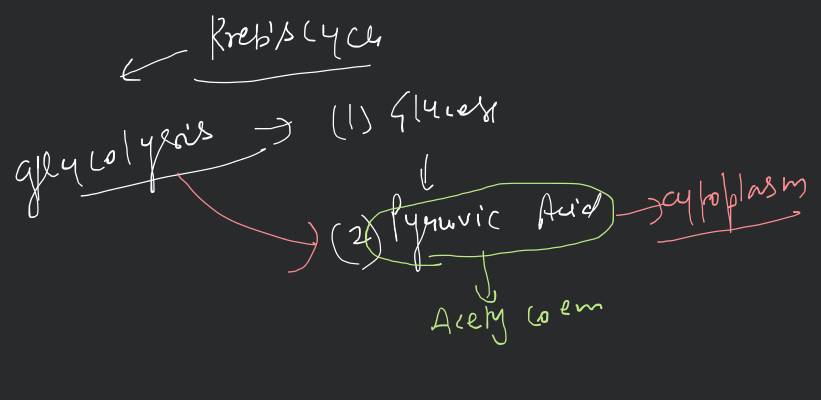 Kreb's cycle
glycolysis → (1) Glucose
↓
(2) Pyruvic Acid → cytoplasm
↓
Acety co em